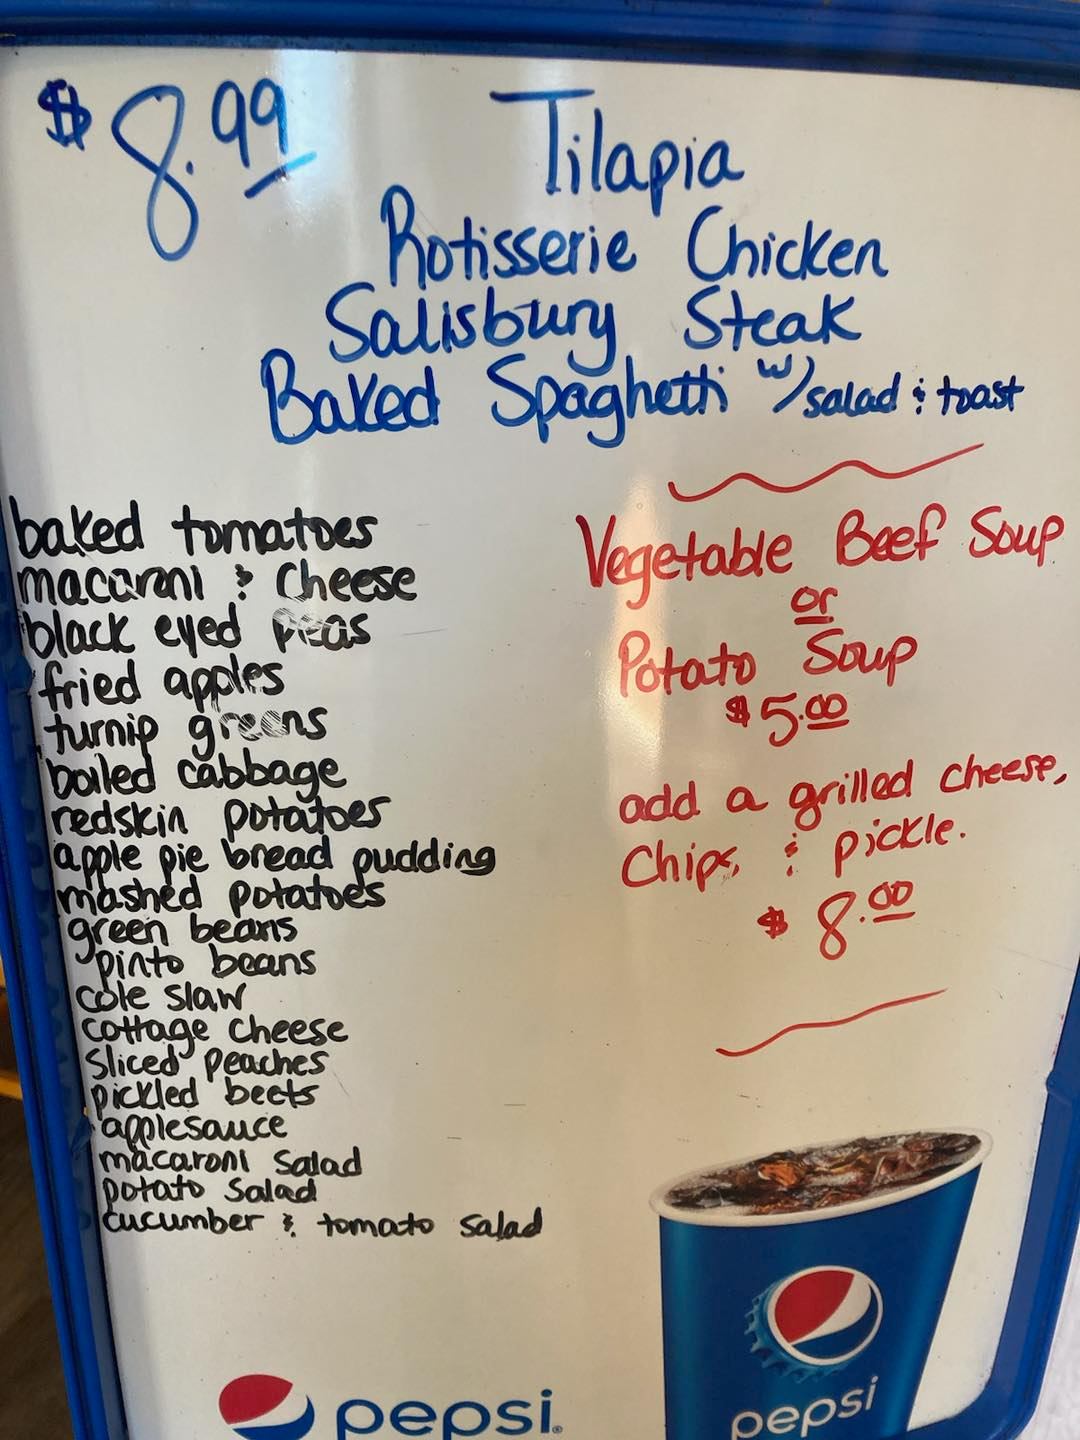 $8.99
Tilapia
Rotisserie Chicken
Salisbury Steak
Baked Spaghetti w/ salad & toast
baked tomatoes
macaroni & cheese
black eyed peas
fried apples
turnip greens
boiled cabbage
redskin potatoes
apple pie bread pudding
mashed potatoes
green beans
pinto beans
cole slaw
cottage cheese
sliced peaches
pickled beets
applesauce
macaroni salad
potato salad
cucumber & tomato salad
Vegetable Beef Soup
or
Potato Soup
$5.00
add a grilled cheese,
Chips, & pickle.
$8.00
pepsi
pepsi